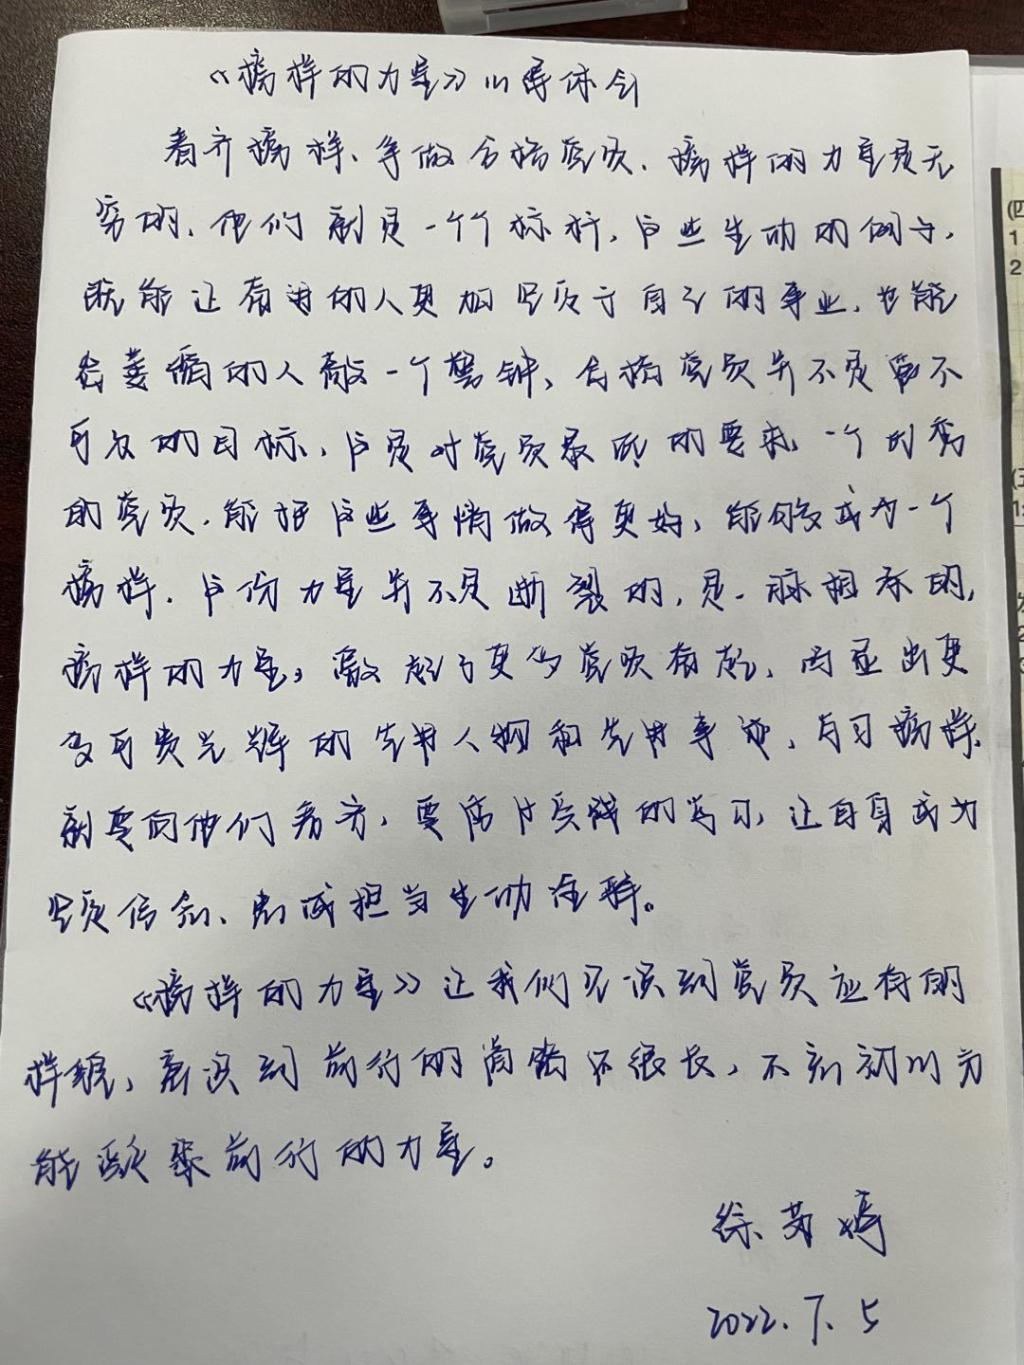 《榜样的力量》心得体会
看齐榜样、争做合格党员、榜样的力量是无
穷的、他们就是一个个标杆、这些生动的例子,
既能让有为的人更加坚定于自己的事业、也能
给萎靡的人敲一个警钟、合格党员并不是遥不
可及的目标、这是对党员最低的要求、一个优秀
的党员、能把这些事情做得更好、能够成为一个
榜样、这份力量并不是断裂的,是一脉相承的,
榜样的力量,激起了更多党员奋起、涌显出更
多可贵光辉的先进人物和先进事迹、学习榜样、
就要向他们看齐,要落于实践的学习,让自身成为
坚定信念、忠诚担当生动诠释。
《榜样的力量》让我们见识到党员应有的
样貌,意识到前行的道路还很长,不忘初心方
能凝聚前行的力量。
2022.7.5
(四
1
2